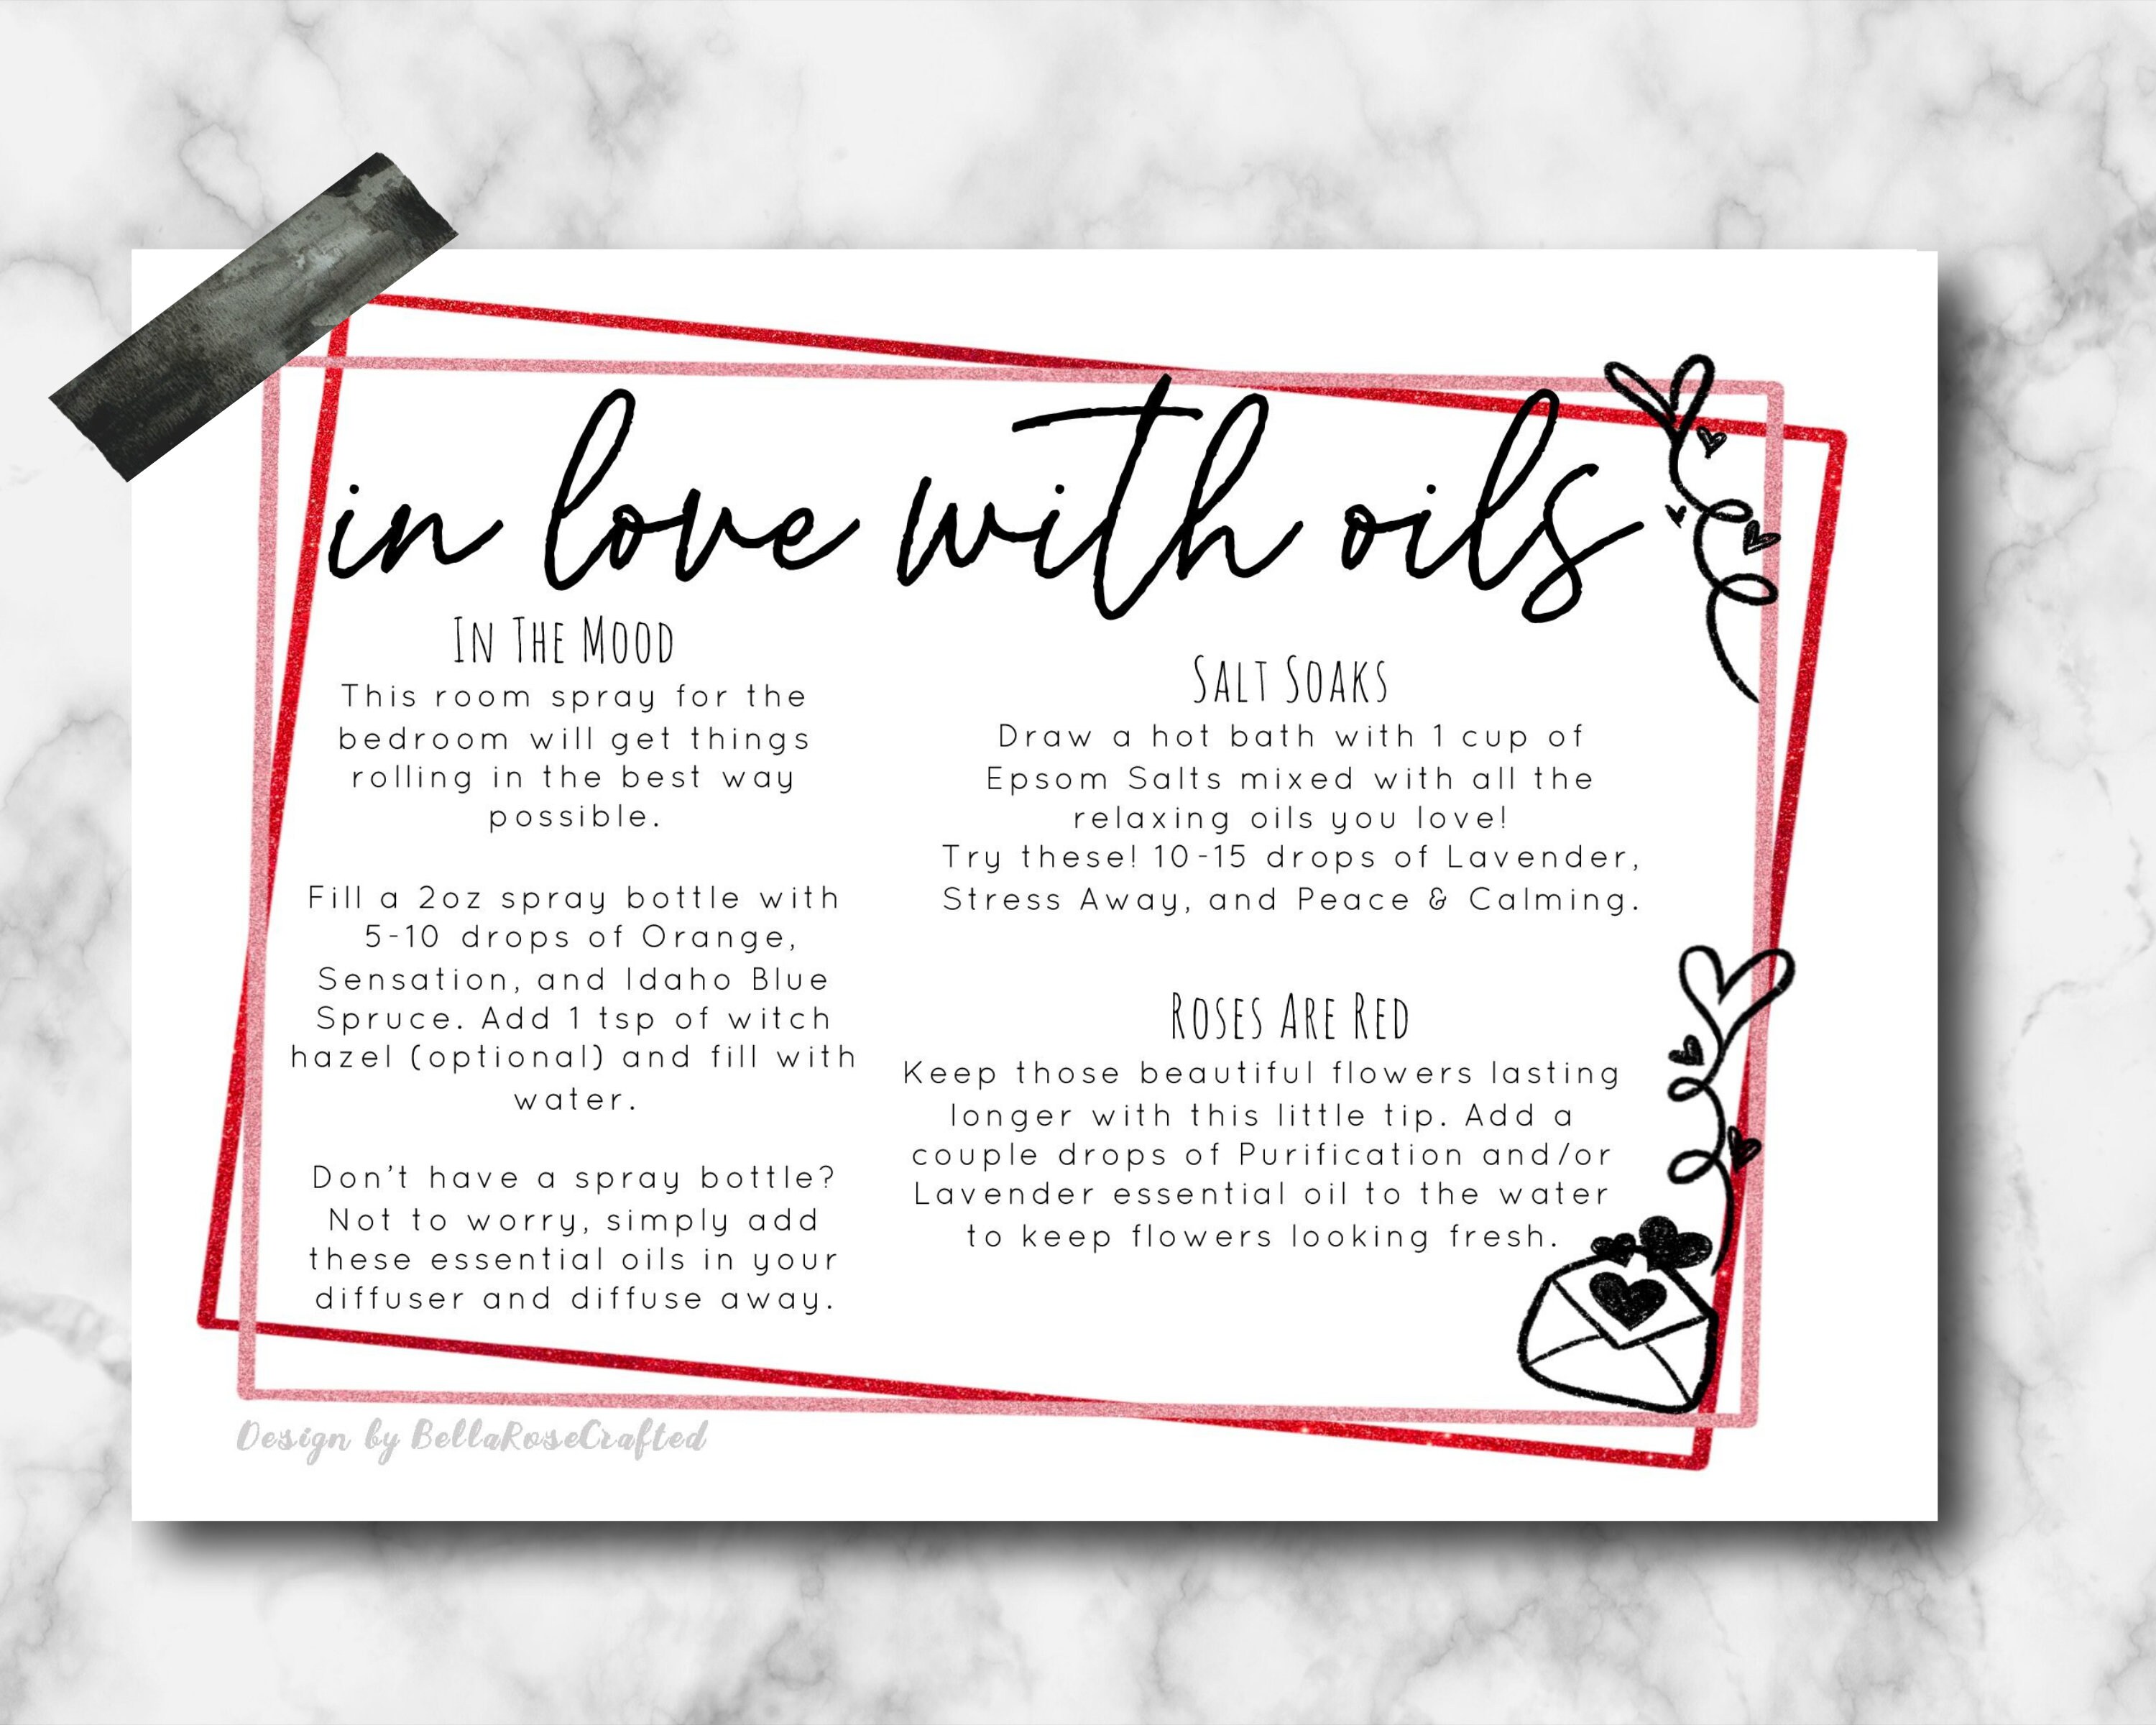 in love with oils
In The Mood
This room spray for the
bedroom will get things
rolling in the best way
possible.
Fill a 2oz spray bottle with
5-10 drops of Orange,
Sensation, and Idaho Blue
Spruce. Add 1 tsp of witch
hazel (optional) and fill with
water.
Don't have a spray bottle?
Not to worry, simply add
these essential oils in your
diffuser and diffuse away.
Salt Soaks
Draw a hot bath with 1 cup of
Epsom Salts mixed with all the
relaxing oils you love!
Try these! 10-15 drops of Lavender,
Stress Away, and Peace & Calming.
Roses Are Red
Keep those beautiful flowers lasting
longer with this little tip. Add a
couple drops of Purification and/or
Lavender essential oil to the water
to keep flowers looking fresh.
Design by BellaRoseCrafted